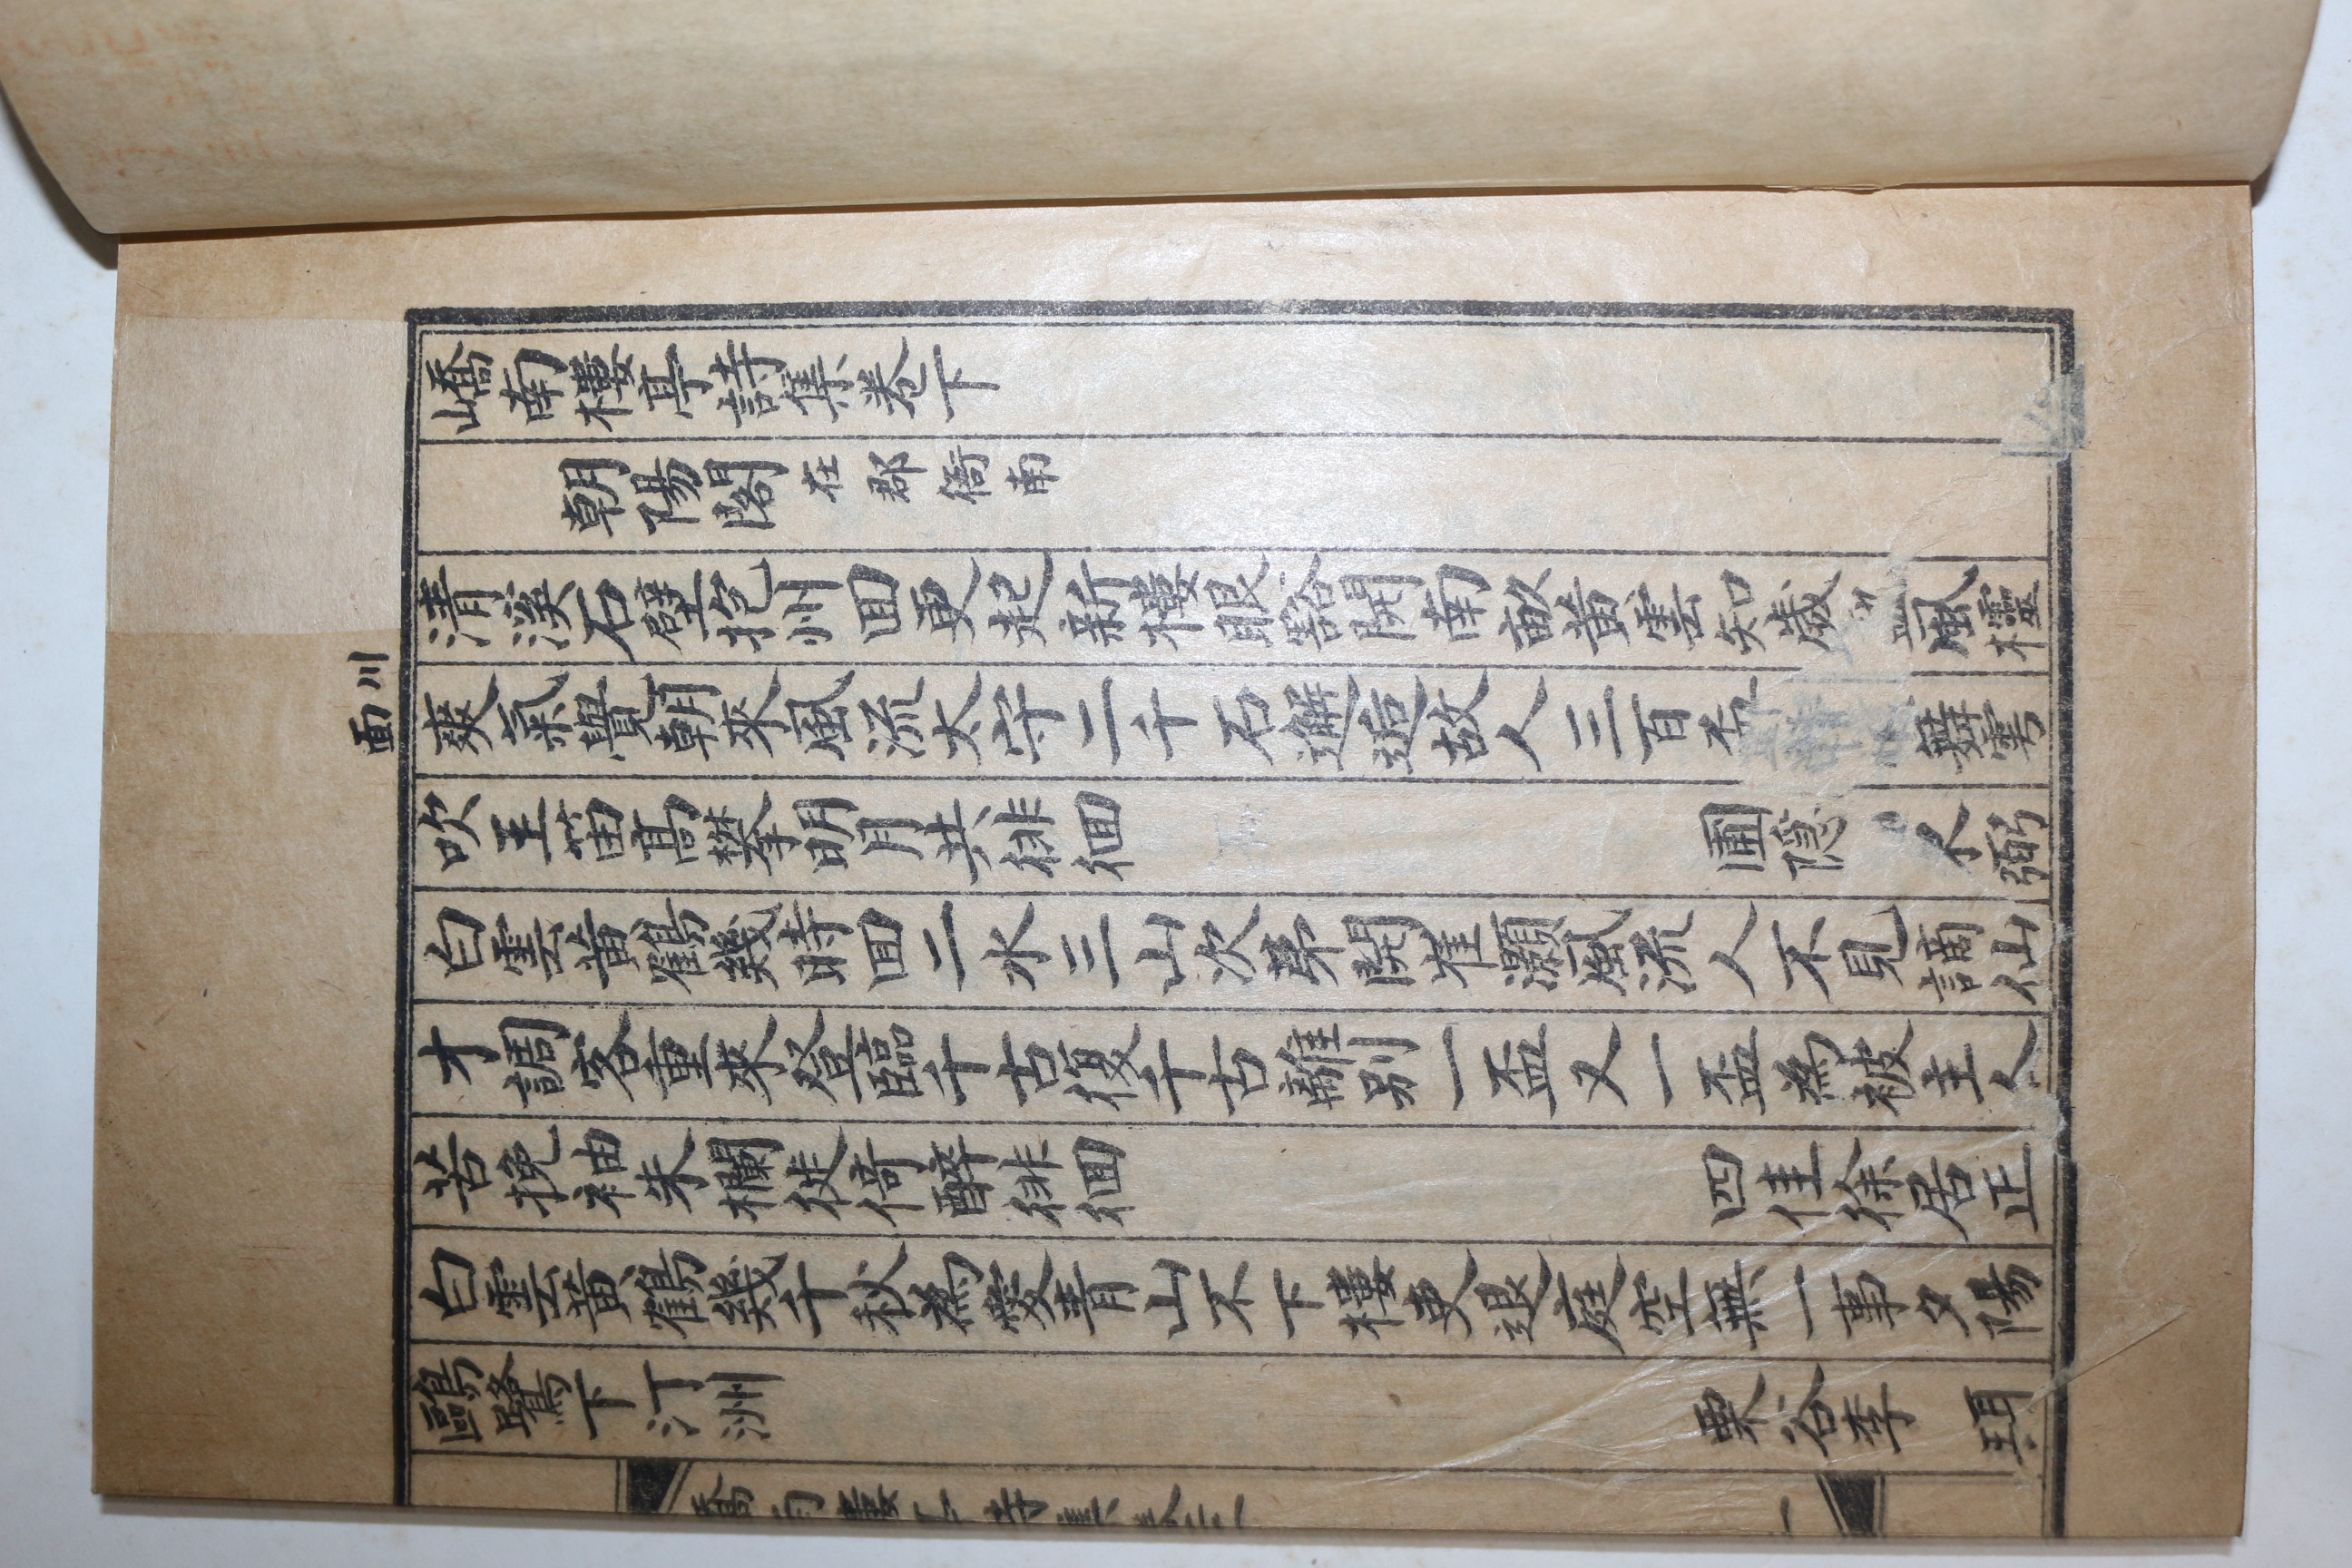 川面
嶠南樓亭詩集卷下
朝陽閣在郡衙南
清溪石壁抱州囬更起新樓眼豁開南畝黃雲知歲風櫺
爽氣覺朝來風流太守二千石邂逅故人三百盃舞雩
吹玉笛高攀明月共徘徊
圃隱
白雲黃鶴幾時囬二水三山次苐開崔灝風流人不見謫仙
才調客重來登臨千古復千古離別一盃又一盃為被主人
苦挽袖朱欄徙倚醉徘徊
四佳徐居正
白雲黃鶴幾千秋為愛青山不下樓吏退庭空無一事夕陽
鷗鷺下汀洲
栗谷李珥
一